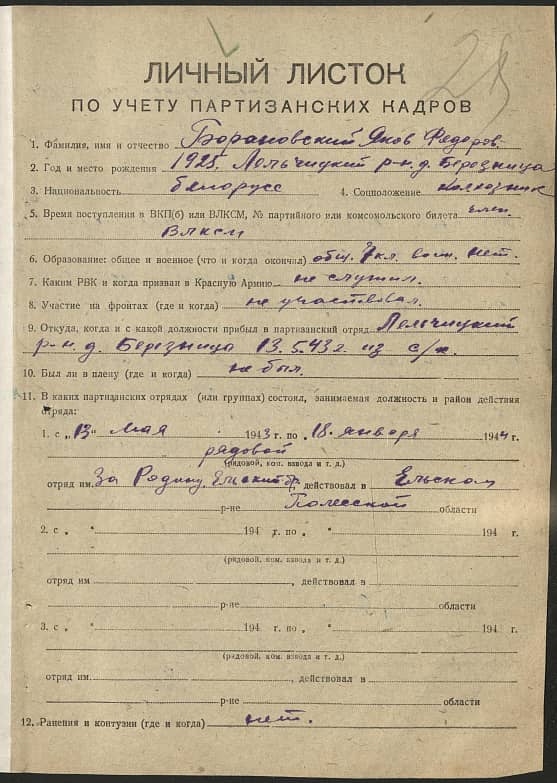 28
ЛИЧНЫЙ ЛИСТОК
ПО УЧЕТУ ПАРТИЗАНСКИХ КАДРОВ
1. Фамилия, имя и отчество Борановский Яков Федоров.
2. Год и место рождения 1925. Лельчицкий р-н. д. Березница
3. Национальность белорусс 4. Соцположение колхозник
5. Время поступления в ВКП(б) или ВЛКСМ, № партийного или комсомольского билета член.
ВЛКСМ
6. Образование: общее и военное (что и когда окончил) общ. 7 кл. воен. нет.
7. Каким РВК и когда призван в Красную Армию не служил.
8. Участие на фронтах (где и когда) не участвовал.
9. Откуда, когда и с какой должности прибыл в партизанский отряд Лельчицкий
р-н. д. Березница 13.5.43г. из с/х.
10. Был ли в плену (где и когда) не был.
11. В каких партизанских отрядах (или группах) состоял, занимаемая должность и район действия
отряда:
1. с „13" мая 1943 г. по „18. января 1944 г.
рядовой
(рядовой, ком. взвода и т. д.)
отряд им. За Родину. Ельский бр. действовал в Ельском
р-не Полесской области
2. с „ " 194 г. по „ " 194 г.
(рядовой, ком. взвода и т. д.)
отряд им , действовал в
р-не области
3. с „ " 194 г. по „ " 194 г.
(рядовой, ком. взвода и т. д.)
отряд им. , действовал в
р-не области
12. Ранения и контузии (где и когда) нет.